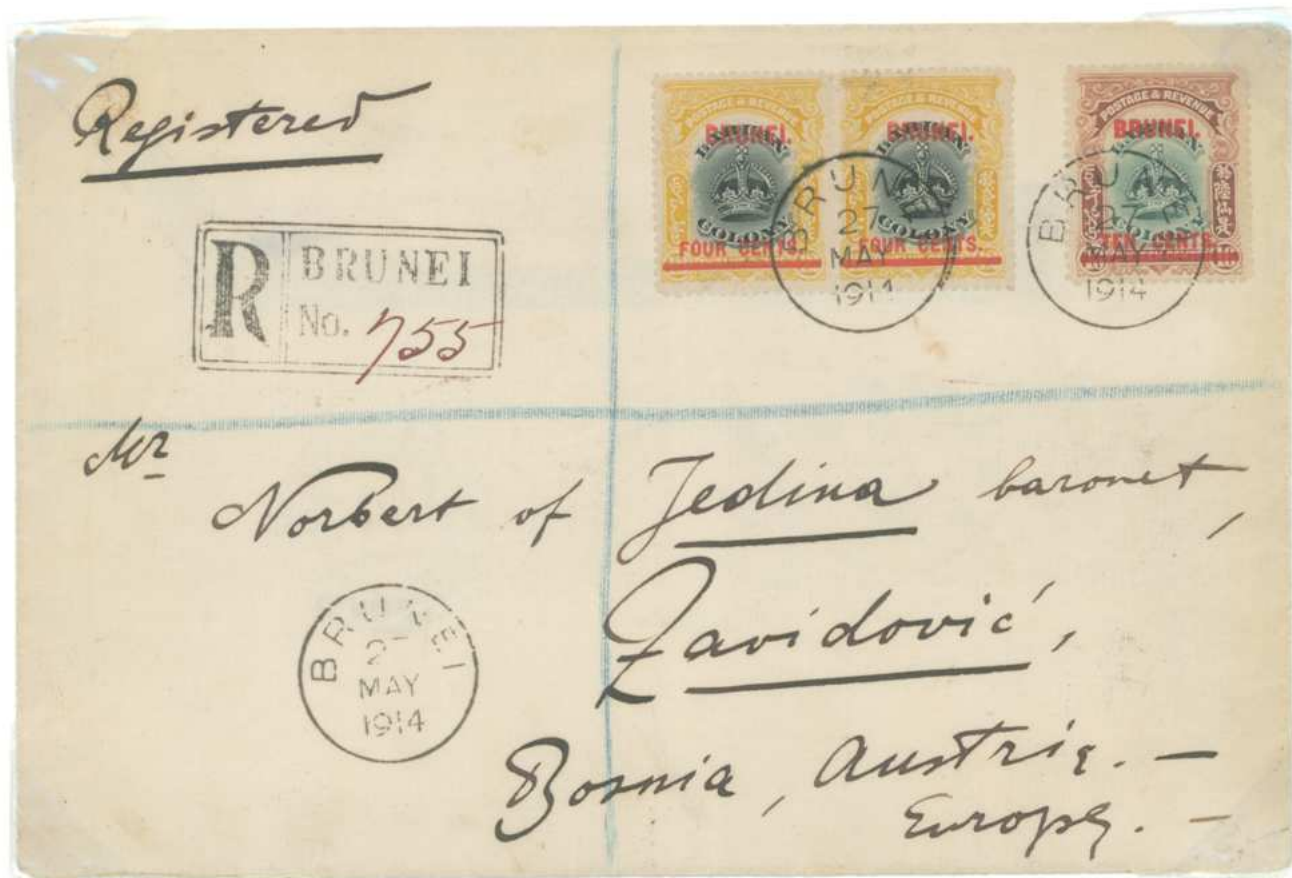 Registered
R BRUNEI
No. 755
POSTAGE & REVENUE
BRUNEI.
LABUAN
COLONY
FOUR CENTS.
POSTAGE & REVENUE
BRUNEI.
LABUAN
COLONY
FOUR CENTS.
POSTAGE & REVENUE
BRUNEI.
LABUAN
COLONY
TEN CENTS.
BRUNEI
27
MAY
1914
BRUNEI
27
MAY
1914
Mr
Norbert of Jedina baronet,
Zavidović,
Bosnia, Austria. —
Europe. —
BRUNEI
27
MAY
1914